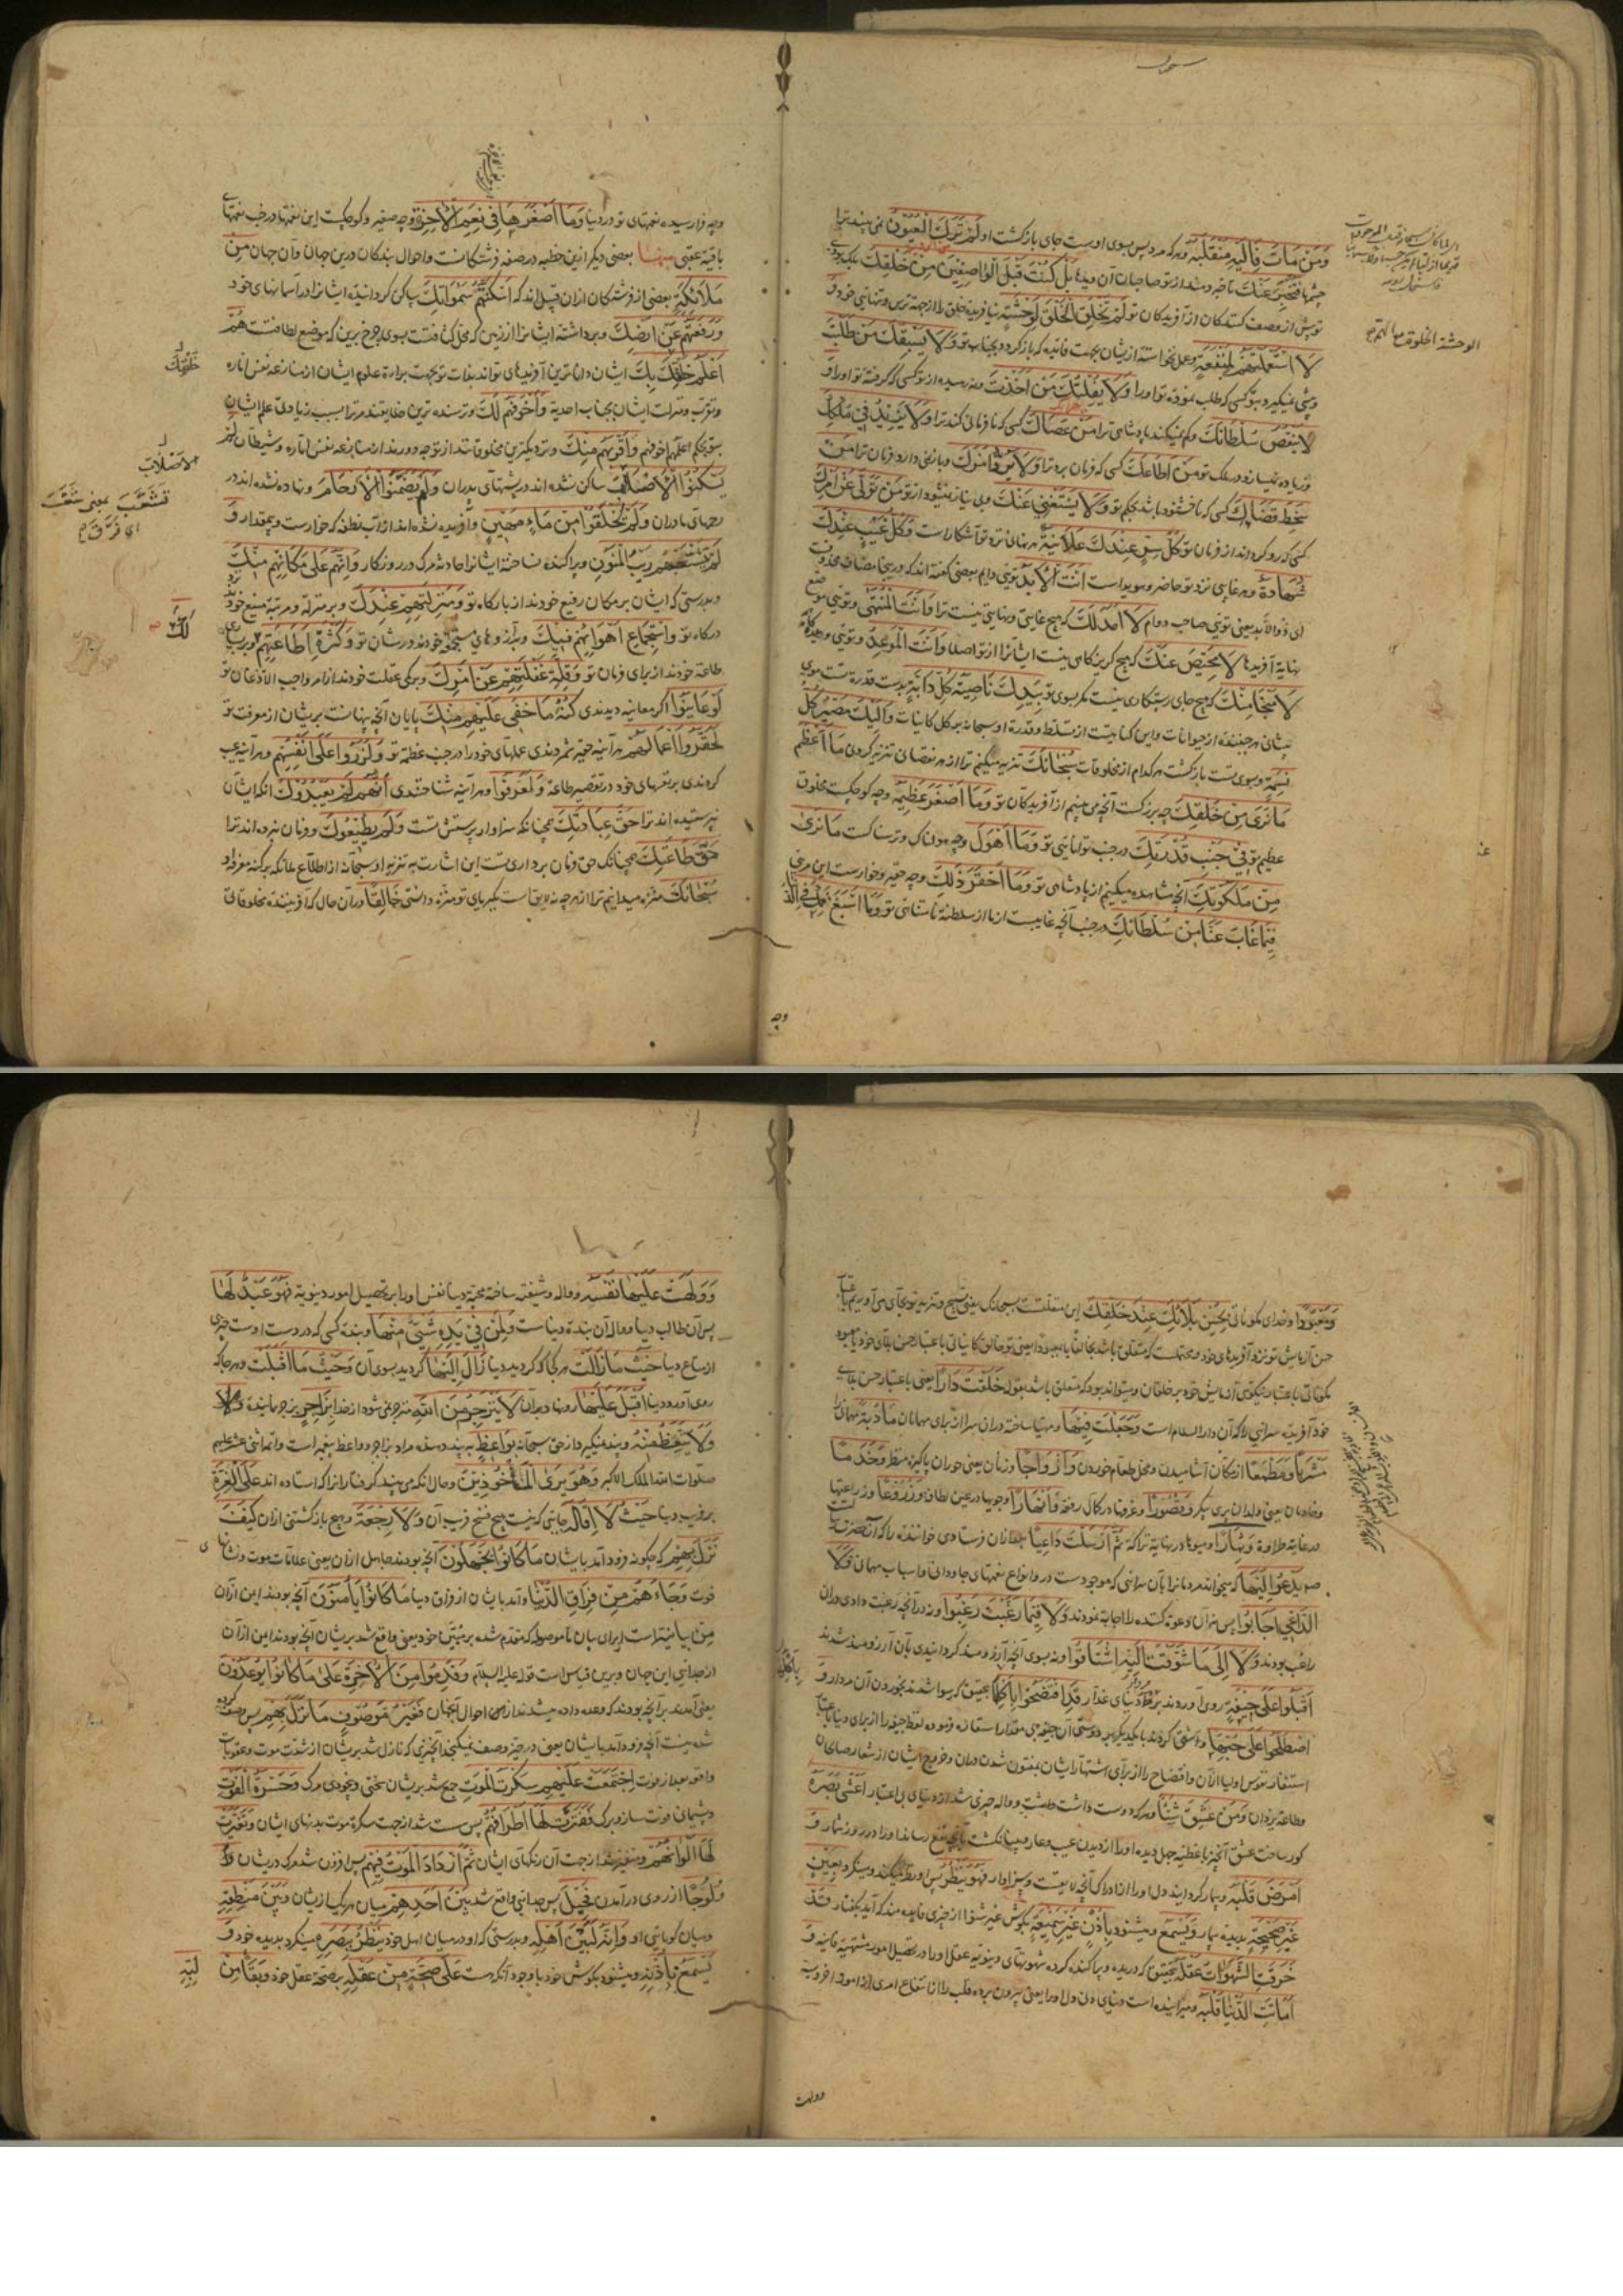 وَمَنْ مَاتَ فَإِلَيْهِ مُنْقَلَبُهُ وهرکه مرد پس بسوی اوست جای بازگشت او لَمْ تَرَكَ الْعُيُونُ نمی بیند ترا
چشمها فَتُخْبِرَ عَنْكَ تا خبر دهند از تو صاحبان آن دیدها بَلْ كُنْتَ قَبْلَ الْوَاصِفِينَ مِنْ خَلْقِكَ بلکه بودی
تو پیش از وصف کنندگان از آفریدگان تو لَمْ تَخْلُقِ الْخَلْقَ لِوَحْشَةٍ نیافریدی خلق را از جهت ترس و تنهائی خود وَ
لَا اسْتَعْمَلْتَهُمْ لِمَنْفَعَةٍ وعمل نخواستی از یشان بجهت فائده که باز گردد بجناب تو وَلَا يَسْبِقُكَ مَنْ طَلَبْتَ
وپیشی نمیگیرد بتو کسی که طلب نمودی تو او را وَلَا يُفْلِتُكَ مَنْ أَخَذْتَ ونه رهیده از تو کسی که گرفتی تو او را وَ
لَا يَنْقُصُ سُلْطَانَكَ وکم نمیکند پادشاهی ترا مَنْ عَصَاكَ کسی که نافرمانی کند ترا وَلَا يَزِيدُ فِي مُلْكِكَ
وزیاده نمیسازد در ملک تو مَنْ أَطَاعَكَ کسی که فرمان برد ترا وَلَا يَرُدُّ أَمْرَكَ وباز نمی دارد فرمان ترا مَنْ
سَخِطَ قَضَاءَكَ کسی که ناخشنود باشد بحکم تو وَلَا يَسْتَغْنِي عَنْكَ وبی نیاز نمیشود از تو مَنْ تَوَلَّى عَنْ أَمْرِكَ
کسی که رو گرداند از فرمان تو كُلُّ سِرٍّ عِنْدَكَ عَلَانِيَةٌ هر نهانی نزد تو آشکار است وَكُلُّ غَيْبٍ عِنْدَكَ
شَهَادَةٌ وهر غایبی نزد تو حاضر و هویداست أَنْتَ الْأَبَدُ توئی دایم بعضی گفته اند که درینجا مضاف محذوفست
ای ذو الأبد یعنی توئی صاحب دوام لَا أَمَدَ لَكَ که هیچ غایتی و نهایتی نیست ترا وَأَنْتَ الْمُنْتَهَى وتوئی موضع
نهایة آفریدها لَا مَحِيصَ عَنْكَ که هیچ گریزگاهی نیست ایشانرا از تو اصلا وَأَنْتَ الْمَوْعِدُ وتوئی وعده گاه
لَا مَنْجَا مِنْكَ که هیچ جای رستگاری نیست مگر بسوی تو بِيَدِكَ نَاصِيَةُ كُلِّ دَابَّةٍ بدست قدرة تست موی
پیشانی هر جنبنده از حیوانات واین کنایتست از تسلط و قدرة او سبحانه بر کل کائنات وَإِلَيْكَ مَصِيرُ كُلِّ
نَسَمَةٍ وبسوی تست بازگشت هر کدام از مخلوقات سُبْحَانَكَ تنزیه میکنم ترا از هر نقصان تنزیه کردنی مَا أَعْظَمَ
مَا نَرَى مِنْ خَلْقِكَ چه بزرگست آنچه می بینم از آفریدگان تو وَمَا أَصْغَرَ عَظِيمَهُ وچه کوچکست مخلوق
عظیم تو فِي جَنْبِ قُدْرَتِكَ در جنب توانائی تو وَمَا أَهْوَلَ وچه هولناک و ترسناکست مَا نَرَى
مِنْ مَلَكُوتِكَ آنچه مشاهده میکنیم از پادشاهی تو وَمَا أَحْقَرَ ذَلِكَ وچه حقیر وخوارست این مرئی
فِيمَا غَابَ عَنَّا مِنْ سُلْطَانِكَ در جنب آنچه غایبست از ما از سلطنة ناشناسی تو وَمَا أَسْبَغَ نِعَمَكَ فِي الدُّنْيَا
الوحشة الخلوة والهم
وچه
وچه فرارسیده نعمتهای تو در دنیا وَمَا أَصْغَرَهَا فِي نِعَمِ الْآخِرَةِ وچه صغیر و کوچکست این نعمتها در جنب نعمتهای
باقیة عقبی مِنْهَا بعضی دیگر ازین خطبه در صفة فرشتگانست واحوال بندگان درین جهان وآن جهان مِنْ
مَلَائِكَةٍ بعضی از فرشتگان ازان قبیل اند که أَسْكَنْتَهُمْ سَمَوَاتِكَ ساکن گردانیدی ایشانرا در آسمانهای خود
وَرَفَعْتَهُمْ عَنْ أَرْضِكَ وبرداشتی ایشانرا از زمین که محل کثافتست بسوی چرخ برین که موضع لطافتست هُمْ
أَعْلَمُ خَلْقِكَ بِكَ ایشان داناترین آفریدهای تواند بذات تو بجهت براءة علوم ایشان از منازعه نفس اماره
وتقرب ومنزلت ایشان بجناب احدیة وَأَخْوَفُهُمْ لَكَ وترسنده ترین خلایقند مر ترا بسبب زیادتی علم ایشان
بتو بحکم اعلمهم اخوفهم وَأَقْرَبُهُمْ مِنْكَ ونزدیکترین مخلوقاتند از تو چه دورند از منازعه نفس اماره وشیطان لَمْ
يَسْكُنُوا الْأَصْلَابَ ساکن نشده اند در پشتهای پدران وَلَمْ يُضَمَّنُوا الْأَرْحَامَ ونهاده نشده اند در
رحمهای مادران وَلَمْ يُخْلَقُوا مِنْ مَاءٍ مَهِينٍ وآفریده نشده اند از آب نطفه که خوارست وبیمقدار وَ
لَمْ يَتَشَعَّبْهُمْ رَيْبُ الْمَنُونِ وپراکنده نساخته ایشانرا حادثه مرگ در روزگار وَإِنَّهُمْ عَلَى مَكَانِهِمْ مِنْكَ
وبدرستی که ایشان بر مکان رفیع خودند از بارگاه تو وَمَنْزِلَتِهِمْ عِنْدَكَ وبر منزله ومرتبه منیع خود نزد
درگاه تو وَاسْتِجْمَاعِ أَهْوَائِهِمْ فِيكَ وبرآرزوهای مجتمعه خودند در شان تو وَكَثْرَةِ طَاعَتِهِمْ لَكَ وبر بسیاری
طاعة خودند از برای فرمان تو وَقِلَّةِ غَفْلَتِهِمْ عَنْ أَمْرِكَ وبر کمی غفلت خودند از امر واجب الاذعان تو
لَوْ عَايَنُوا اگر معاینه دیدندی كُنْهَ مَا خَفِيَ عَلَيْهِمْ مِنْكَ پایان آنچه پنهانست بریشان از معرفت تو
لَحَقَّرُوا أَعْمَالَهُمْ هر آینه حقیر شمردندی عملهای خود را در جنب عظمة تو وَلَزَرَوْا عَلَى أَنْفُسِهِمْ وهر آینه عیب
کردندی بر نفسهای خود در تقصیر طاعة وَلَعَرَفُوا وهر آینه شناختندی أَنَّهُمْ لَمْ يَعْبُدُوكَ آنکه ایشان
نپرستیده اند ترا حَقَّ عِبَادَتِكَ همچنانکه سزاوار پرستش تست وَلَمْ يُطِيعُوكَ وفرمان نبرده اند ترا
حَقَّ طَاعَتِكَ همچنانکه حق فرمان برداری تست این اشارت به تنزیه او سبحانه از اطلاع ملائکه بر کنه معرفة او
سُبْحَانَكَ منزه میدانیم ترا از هر چه نه لایق است بکبریای تو منزه دانستنی خَالِقًا در آن حال که آفریننده مخلوقاتی
خَلْقِكَ
الأَصْلَابَ
فَتَشَعَّبَ بمعنى شَعَّبَ
اى فَرَّقَ
لَكَ
وَمَعْبُودًا وخدای مکوناتی بِحُسْنِ بَلَائِكَ عِنْدَ خَلْقِكَ این متعلقست بسبحانک یعنی تسبیح وتنزیه تو بجای می آوریم باعتبار
حسن آزمایش تو نزد آفریدهای خود ومحتملست که متعلق باشد بخالقا یا بمعبودا یعنی تو خالق کائناتی باعتبار حسن بلای خود یا معبود
مکوناتی باعتبار نیکوئی آزمایش خود بر خلقان ومیتواند بود که متعلق باشد بقوله خَلَقْتَ دَارًا یعنی باعتبار حسن بلای
خود آفریدی سرائی را که آن دار السلام است وَجَعَلْتَ فِيهَا ومهیا ساختی دران سرا از برای مهمانان مَأْدُبَةً مهمانی را
مَشْرَبًا وَمَطْعَمًا از مکان آشامیدن ومحل طعام خوردن وَأَزْوَاجًا وزنان یعنی حوران پاکیزه منظر وَخَدَمًا
وخادمان یعنی ولدان پری پیکر وَقُصُورًا وغرفها در کمال رفعة وَأَنْهَارًا وجویها در عین لطافة وَزُرُوعًا وزراعتها
در غایة طلاوة وَثِمَارًا ومیوها در نهایة نزاکة ثُمَّ أَرْسَلْتَ دَاعِيًا بعد ازان فرستادی خواننده را که آنحضرت رسالت
يَدْعُو إِلَيْهَا که میخواند مردمانرا بآن سرائی که موجودست در و انواع نعمتهای جاودانی و اسباب مهمانی فَلَا
الدَّاعِيَ أَجَابُوا پس نه آن دعوة کننده را اجابة نمودند وَلَا فِيمَا رَغَّبْتَ رَغِبُوا ونه در آنچه رغبت دادی دران
راغب بودند وَلَا إِلَى مَا شَوَّقْتَ إِلَيْهِ اشْتَاقُوا ونه بسوی آنچه آرزومند گردانیدی بآن آرزومند شدند
أَقْبَلُوا عَلَى جِيفَةٍ روی آوردند بر مردار دنیای غدار قَدِ افْتَضَحُوا بِأَكْلِهَا بتحقیق که رسوا شدند بخوردن آن مردار وَ
اصْطَلَحُوا عَلَى حُبِّهَا وآشتی کردند با یکدیگر بر دوستی آن جیفه
وطاعة یزدان وَمَنْ عَشِقَ شَيْئًا وهر که دوست داشت و واله چیزی شد از دنیای بی اعتبار أَعْشَى بَصَرَهُ
أَمْرَضَ قَلْبَهُ وبیمار گردانید دل او را فَهُوَ يَنْظُرُ پس او نظر میکند ومینگرد بِعَيْنٍ
غَيْرِ صَحِيحَةٍ بدیده بیمار وَيَسْمَعُ ومیشنود بِأُذُنٍ غَيْرِ سَمِيعَةٍ بگوش غیر شنوا قَدْ
خَرَقَتِ الشَّهَوَاتُ عَقْلَهُ بتحقیق که دریده وپراکنده کرده شهوتهای دنیویه عقل او را در تحصیل امور مشتهیة فانیه وَ
أَمَاتَتِ الدُّنْيَا قَلْبَهُ ومیرانیده است دنیای دنی دل او را
وولهت
وَوَلِهَتْ عَلَيْهَا نَفْسُهُ وواله وشیفته ساخته محبة دنیا نفس او را بر تحصیل امور دنیویة فَهُوَ عَبْدٌ لَهَا
پس آن طالب دنیا و واله آن بنده دنیاست وَلِمَنْ فِي يَدِهِ شَيْءٌ مِنْهَا وبنده کسی که در دست اوست چیزی
از متاع دنیا حَيْثُ مَا زَالَتْ هر کجا که گردید دنیا زَالَ إِلَيْهَا گردید بسوی آن وَحَيْثُ مَا أَقْبَلَتْ وهر جا که
روی آورد دنیا أَقْبَلَ عَلَيْهَا رو نهاد بران لَا يَنْزَجِرُ مِنَ اللهِ منزجر نمی شود از خدا بِزَاجِرٍ بزجر نماینده وَلَا
وَلَا يَتَّعِظُ مِنْهُ وپند نمیگیرد از حق سبحانه بِوَاعِظٍ به پند دهنده مراد بزاجر و واعظ پیغمبر است وائمه اثنی عشر علیهم
صلوات الله الملک الاکبر وَهُوَ يَرَى الْمَأْخُوذِينَ وحال آنکه می بیند گرفتارانرا که استاده اند عَلَى الْغِرَّةِ
بر فریب دنیا حَيْثُ لَا إِقَالَةَ جائی که نیست هیچ فسخ فریب آن وَلَا رِجْعَةَ وهیچ بازگشتنی ازان كَيْفَ
نَزَلَ بِهِمْ که چگونه فرود آمد بایشان مَا كَانُوا يَجْهَلُونَ آنچه بودند جاهل ازان یعنی علامات موت ونشانهای
فوت وَجَاءَهُمْ مِنْ فِرَاقِ الدُّنْيَا وآمد بایشان از فراق دنیا مَا كَانُوا يَأْمَنُونَ آنچه بودند ایمن ازان
مِن بیانیة است از برای بیان ما موصوله که مقدم شده بر مُبَيَّن خود یعنی واقع شد بریشان آنچه بودند ایمن ازان
از جدائی این جهان وبرین قیاس است قوله علیه السلام وَقَدِمُوا مِنَ الْآخِرَةِ عَلَى مَا كَانُوا يُوعَدُونَ
یعنی آمدند بر آنچه بودند که وعده داده میشدند ازان احوال آنجهان فَغَيْرُ مَوْصُوفٍ مَا نَزَلَ بِهِمْ پس وصف کرده
شده نیست آنچه فرود آمد بایشان یعنی در حیز وصف نمیگنجد آنچیزی که نازل شد بریشان از شدت موت وعقوبات
واقعه بعد از فوت اجْتَمَعَتْ عَلَيْهِمْ سَكْرَةُ الْمَوْتِ جمع شد بریشان سختی وبیخودی مرگ وَحَسْرَةُ الْفَوْتِ
وپشیمانی فوت ساز وبرگ فَفَتَرَتْ لَهَا أَطْرَافُهُمْ پس سست شد از جهت سکرة موت بدنهای ایشان وَتَغَيَّرَتْ
لَهَا أَلْوَانُهُمْ ومتغیر شد از جهت آن رنگهای ایشان ثُمَّ ازْدَادَ الْمَوْتُ فِيهِمْ پس افزون شد مرگ در یشان
وُلُوجًا از روی درآمدن فَحِيلَ پس جدائی واقع شد بَيْنَ أَحَدِهِمْ میان هر یک از یشان وَبَيْنَ مَنْطِقِهِ
ومیان گویائی او وَإِنَّهُ لَبَيْنَ أَهْلِهِ وبدرستی که او در میان اهل خود يَنْظُرُ بِبَصَرِهِ مینگرد بدیده خود وَ
يَسْمَعُ بِأُذُنِهِ ومیشنود بگوش خود با وجود آنکه هست عَلَى صِحَّةٍ مِنْ عَقْلِهِ بر صحة عقل خود وَبَقَاءٍ مِنْ
لُبِّهِ